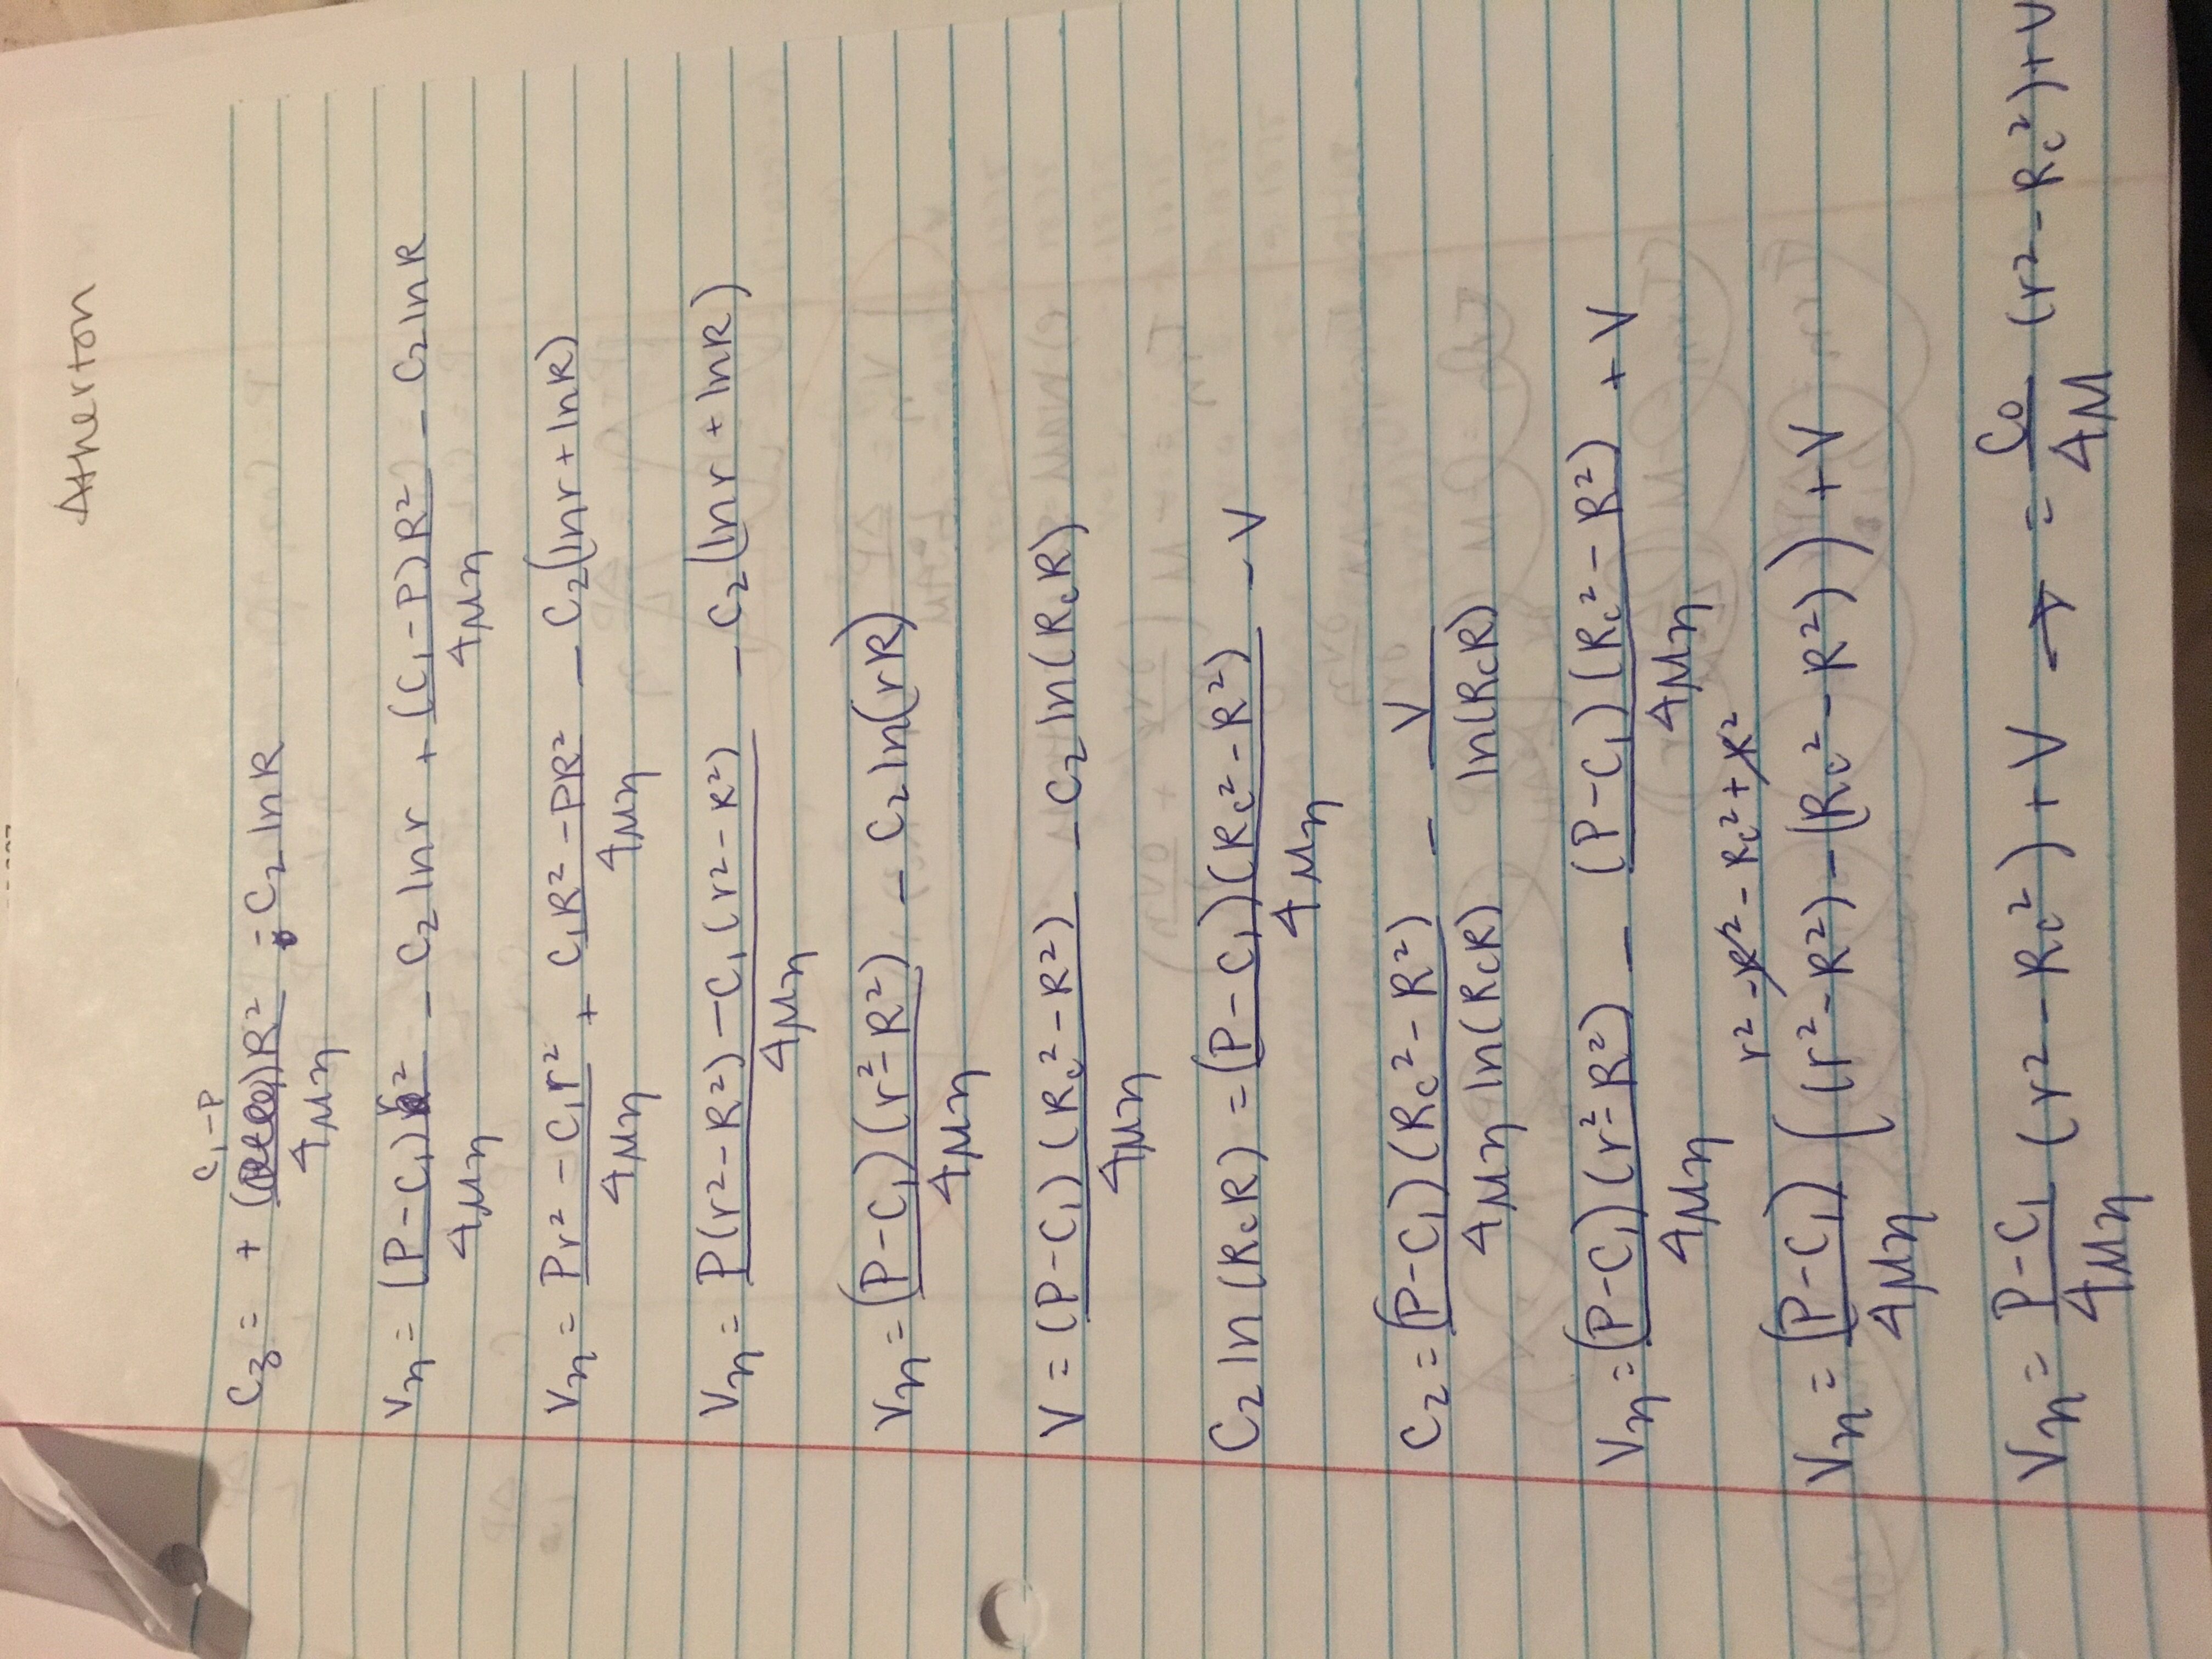 Atherton
C₁-P
C₃ = + ( )R² / 4μη - C₂ ln R
Vη = (P-C₁)r² / 4μη - C₂ ln r + (C₁-P)R² / 4μη - C₂ ln R
Vη = Pr² - C₁r² / 4μη + C₁R² - PR² / 4μη - C₂(ln r + ln R)
Vη = P(r²-R²) - C₁(r²-R²) / 4μη - C₂(ln r + ln R)
Vη = (P-C₁)(r²-R²) / 4μη - C₂ ln(rR)
V = (P-C₁)(Rc²-R²) / 4μη - C₂ ln(RcR)
C₂ ln(RcR) = (P-C₁)(Rc²-R²) / 4μη - V
C₂ = (P-C₁)(Rc²-R²) / 4μη ln(RcR) - V / ln(RcR)
Vη = (P-C₁)(r²-R²) / 4μη - (P-C₁)(Rc²-R²) / 4μη + V
r² - R² - Rc² + R²
Vη = (P-C₁) / 4μη ((r²-R²) - (Rc²-R²)) + V
Vη = P-C₁ / 4μη (r²-Rc²) + V → = C₀ / 4μ (r²-Rc²) + V